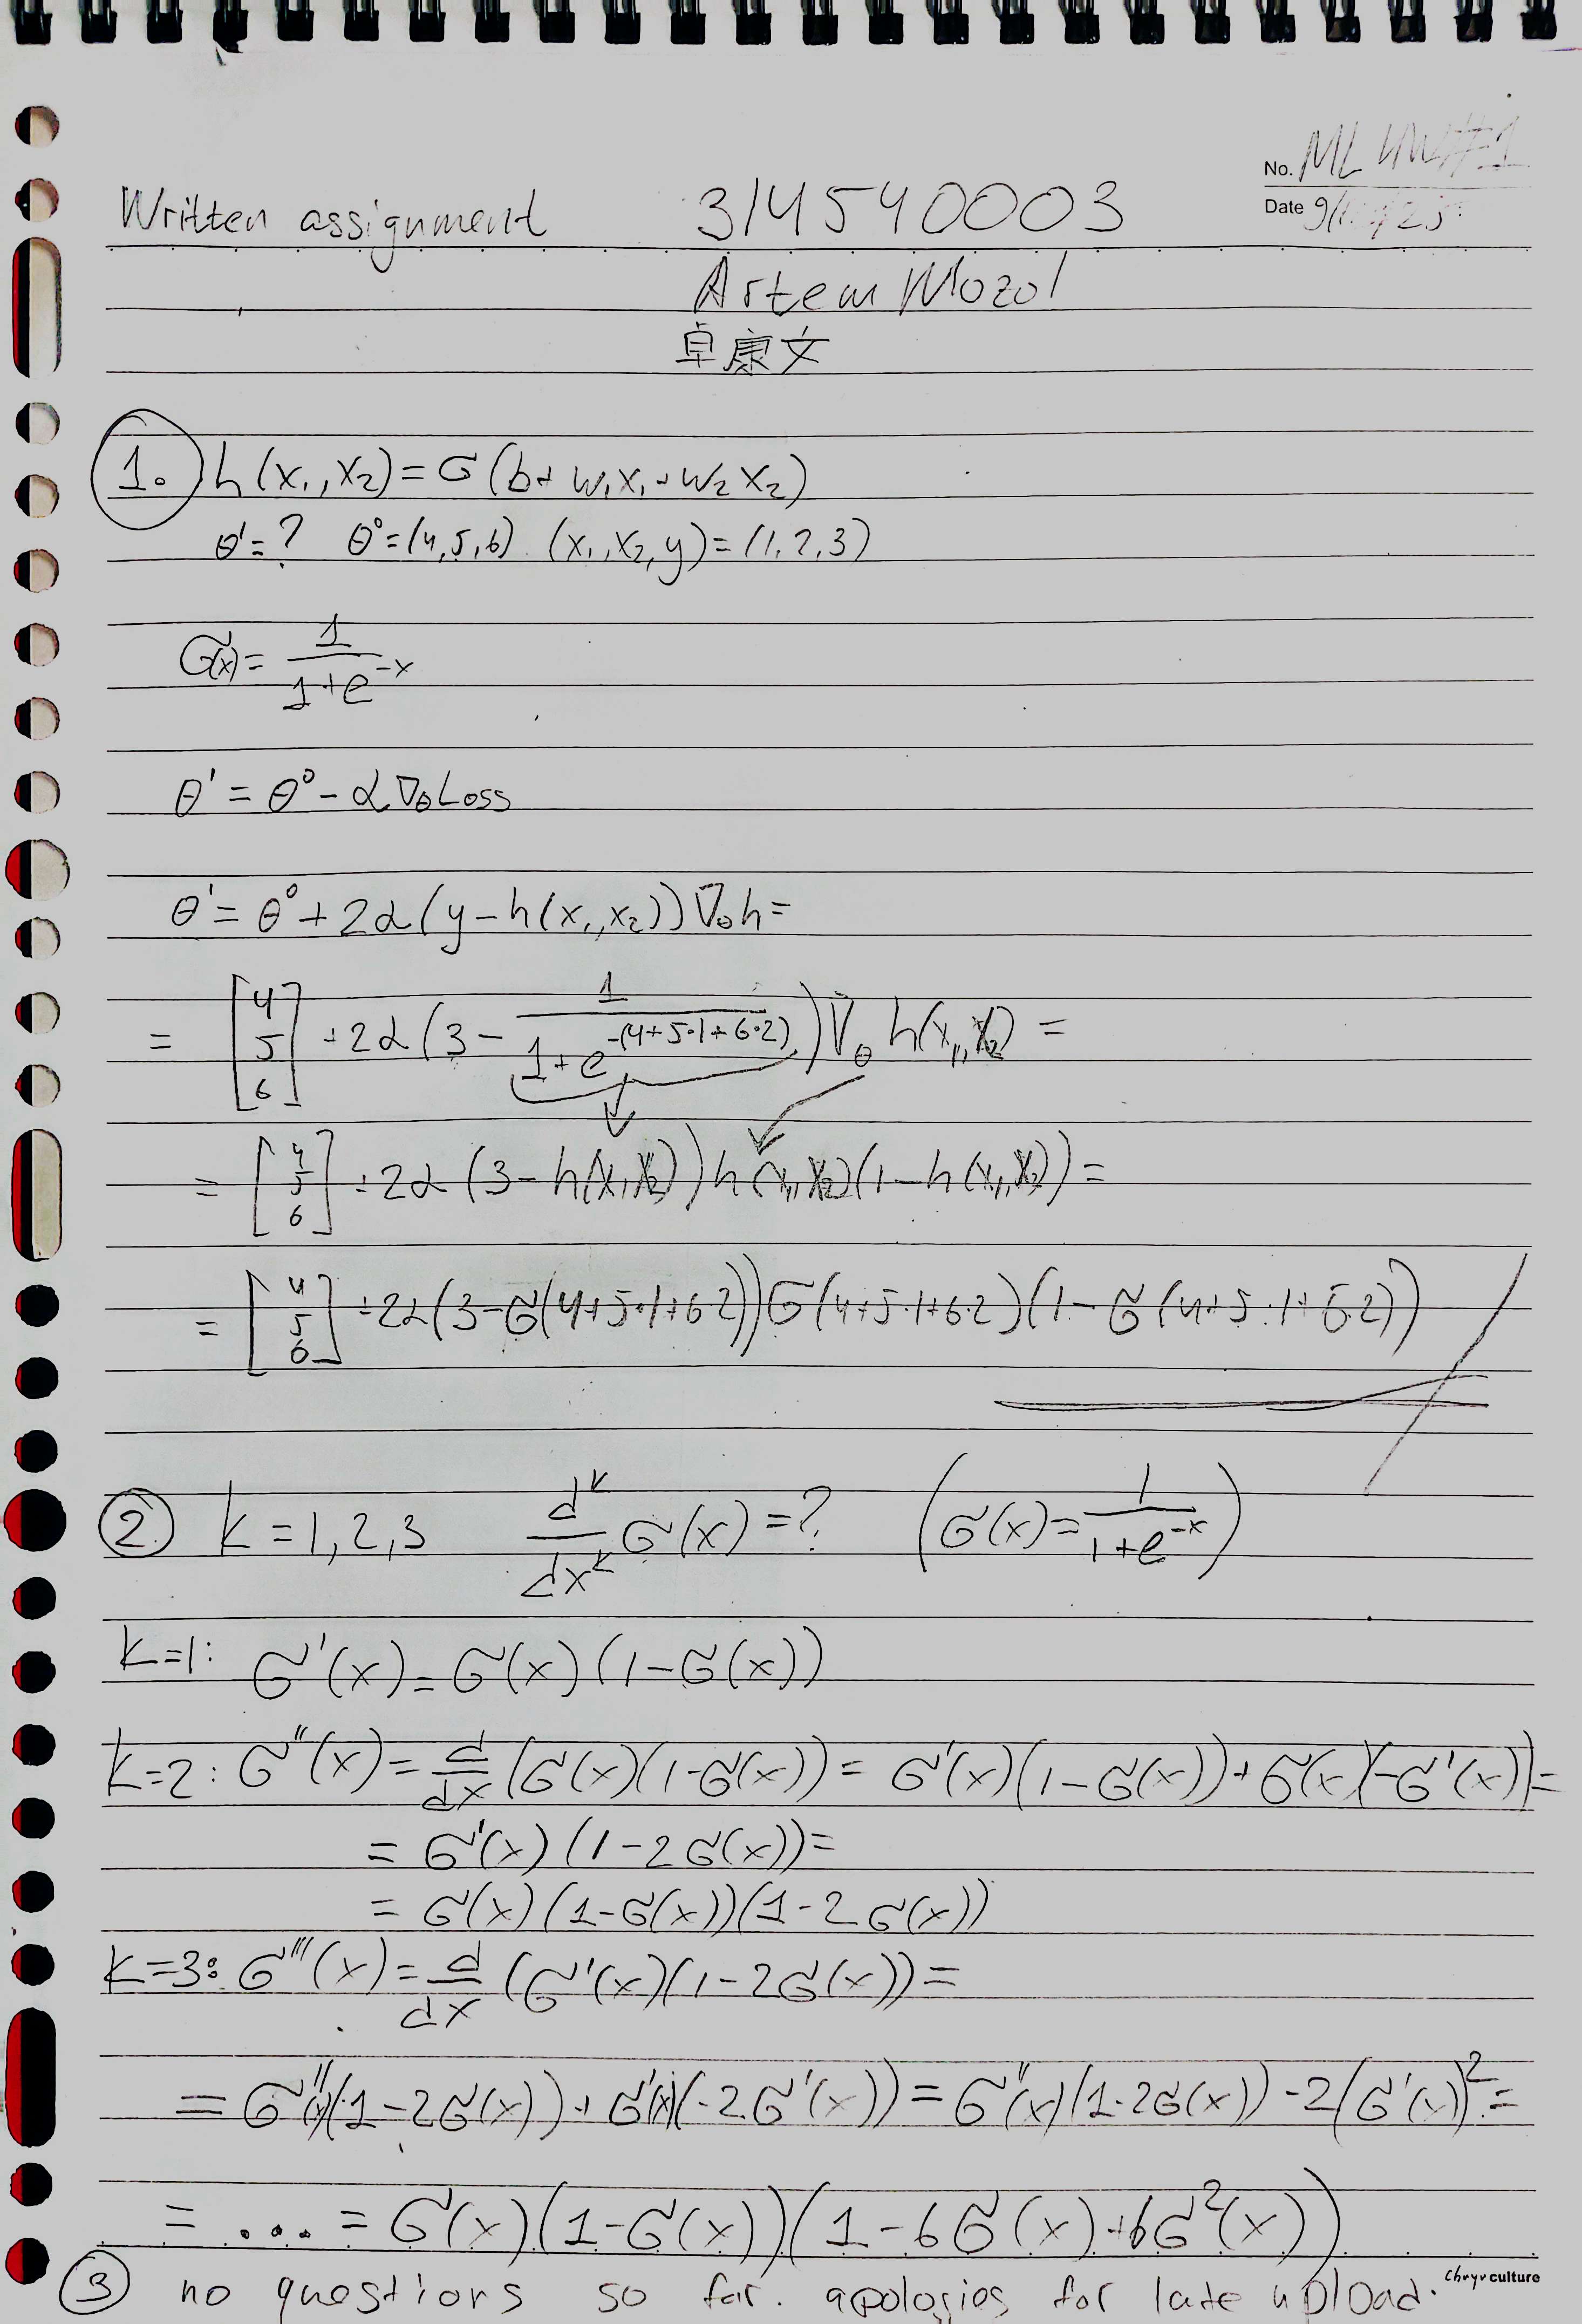 No. ML HW#1
Written assignment 314540003 Date 9/ /25
Artem Mozol
卓康文
1. h(x₁,x₂)=σ(b+w₁x₁+w₂x₂)
θ¹=? θ⁰=(4,5,6) (x₁,x₂,y)=(1,2,3)
σ(x)=1/(1+e^(-x))
θ¹=θ⁰-α∇θLoss
θ¹=θ⁰+2α(y-h(x₁,x₂))∇θh=
=[4 5 6]+2α(3-1/(1+e^(-(4+5·1+6·2))))∇θh(x₁,x₂)=
=[4 5 6]+2α(3-h(x₁,x₂))h(x₁,x₂)(1-h(x₁,x₂))=
=[4 5 6]+2α(3-σ(4+5·1+6·2))σ(4+5·1+6·2)(1-σ(4+5·1+6·2))
2 k=1,2,3 d^k/dx^k σ(x)=? (σ(x)=1/(1+e^(-x)))
k=1: σ'(x)=σ(x)(1-σ(x))
k=2: σ''(x)=d/dx(σ(x)(1-σ(x))=σ'(x)(1-σ(x))+σ(x)(-σ'(x))=
=σ'(x)(1-2σ(x))=
=σ(x)(1-σ(x))(1-2σ(x))
k=3: σ'''(x)=d/dx(σ'(x)(1-2σ(x))=
=σ''(x)(1-2σ(x))+σ'(x)(-2σ'(x))=σ''(x)(1-2σ(x))-2(σ'(x))²=
=...=σ(x)(1-σ(x))(1-6σ(x)+6σ²(x))
3 no questions so far. apologies for late upload.
chryrculture